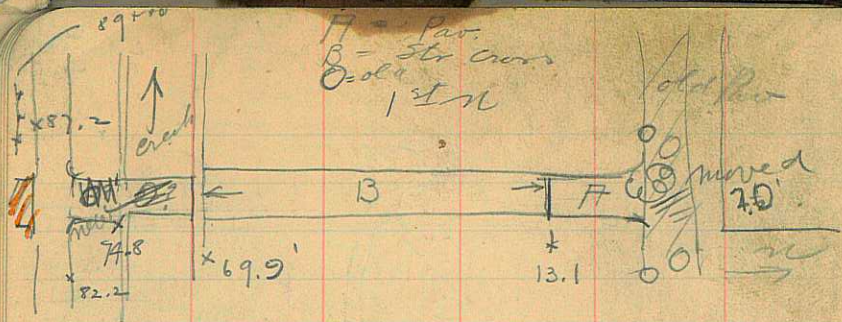 89
A = Pav.
B = Str Cross
O = old
1st N
×87.2
creek
old Pav
B
A
moved
7.0'
new
74.8
×82.2
×69.9'
13.1
N